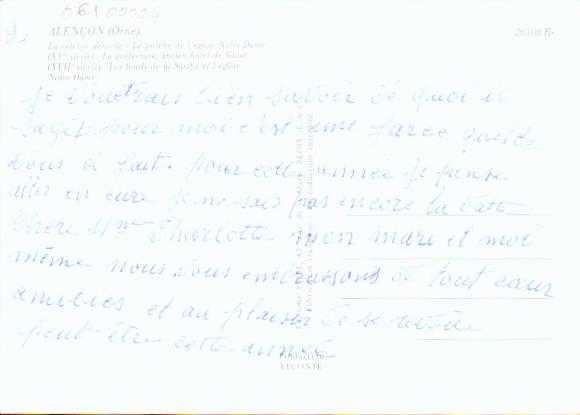 06100004
9,
ALENÇON (Orne).
26108 R
La célèbre dentelle - Le porche de l'église Notre-Dame
(XVᵉ siècle) - La préfecture, ancien hôtel de Guise
(XVIIᵉ siècle) - Les bords de la Sarthe et l'église
Notre-Dame.
Je voudrais bien savoir de quoi il
sagit pour moi c'est une farce
vous a fait. pour cette année je pense
aller en cure je ne sais pas encore la date
Chere Mme Charlotte mon mari et moi
même nous vous embrassons de tout cœur
amities et au plaisir de se revoir
peut être cette année
Production
LECONTE